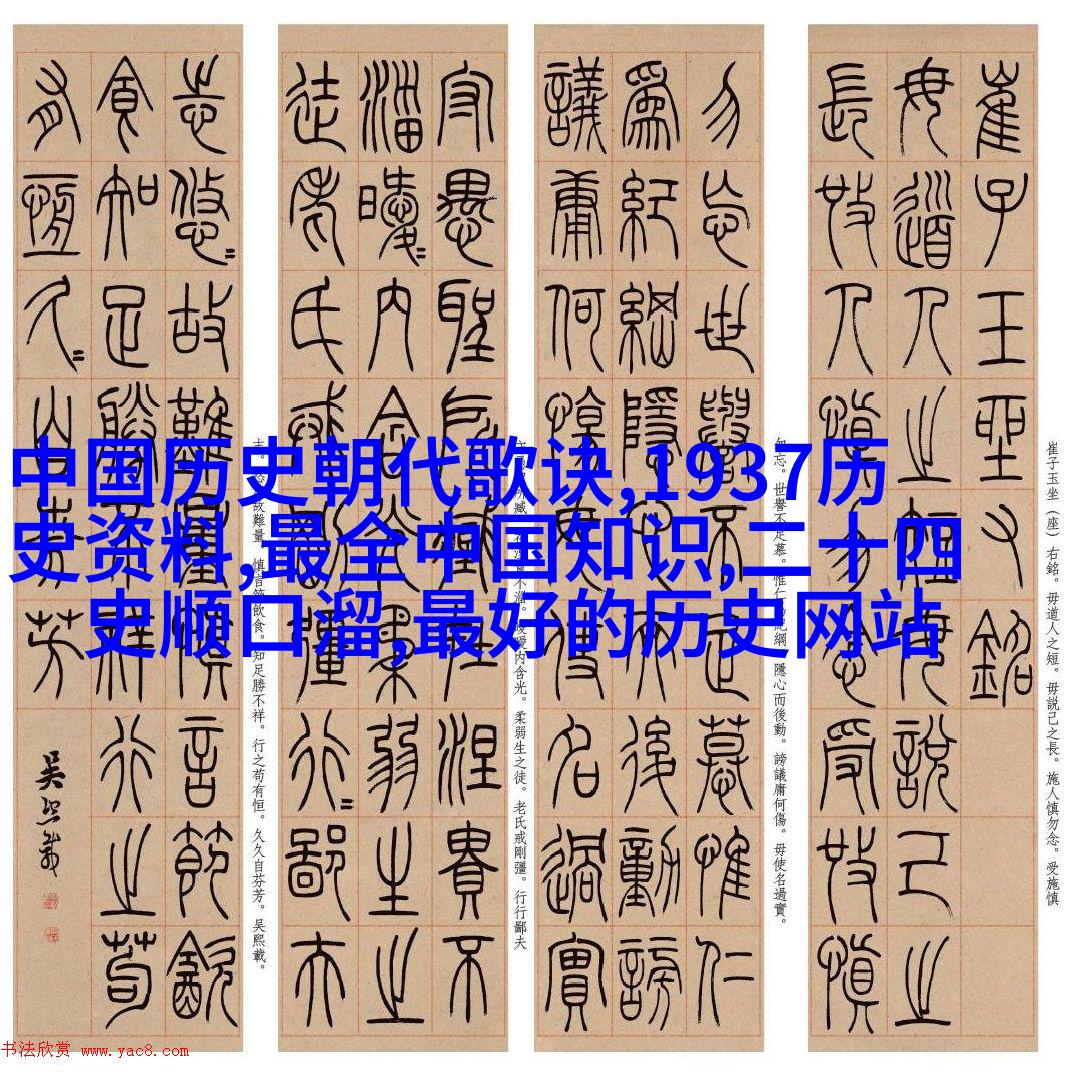 崔子玉坐右銘
毋道人之短毋說己之
長施人慎勿念受施慎
崔子玉坐（座）右銘。毋道人之短。毋説己之長。施人慎勿念。受施慎
勿忘世譽不足慕惟仁
為紀綱隱心而後動謗
議庸何傷毋使名過實
勿忘。世譽不足慕。惟仁為紀綱。隱心而後動。謗議庸何傷。毋使名過實。
守愚聖所臧在涅貴不
淄曖=內含光柔弱生之
徒老氏戒剛彊行=鄙夫
守愚聖所臧。在涅貴不淄。曖曖內含光。柔弱生之徒。老氏戒剛彊。行行鄙夫
志悠=故難量慎言節飲
食知足勝不祥行之苟
有恆久=自芬芳
吳熙載
志。悠悠故難量。慎言節飲食。知足勝不祥。行之苟有恒。久久自芬芳。吳熙載。
中国历史朝代歌诀,1937历
史资料,最全中国知识,二十四
史顺口溜,最好的历史网站
书法欣赏 www.yac8.com